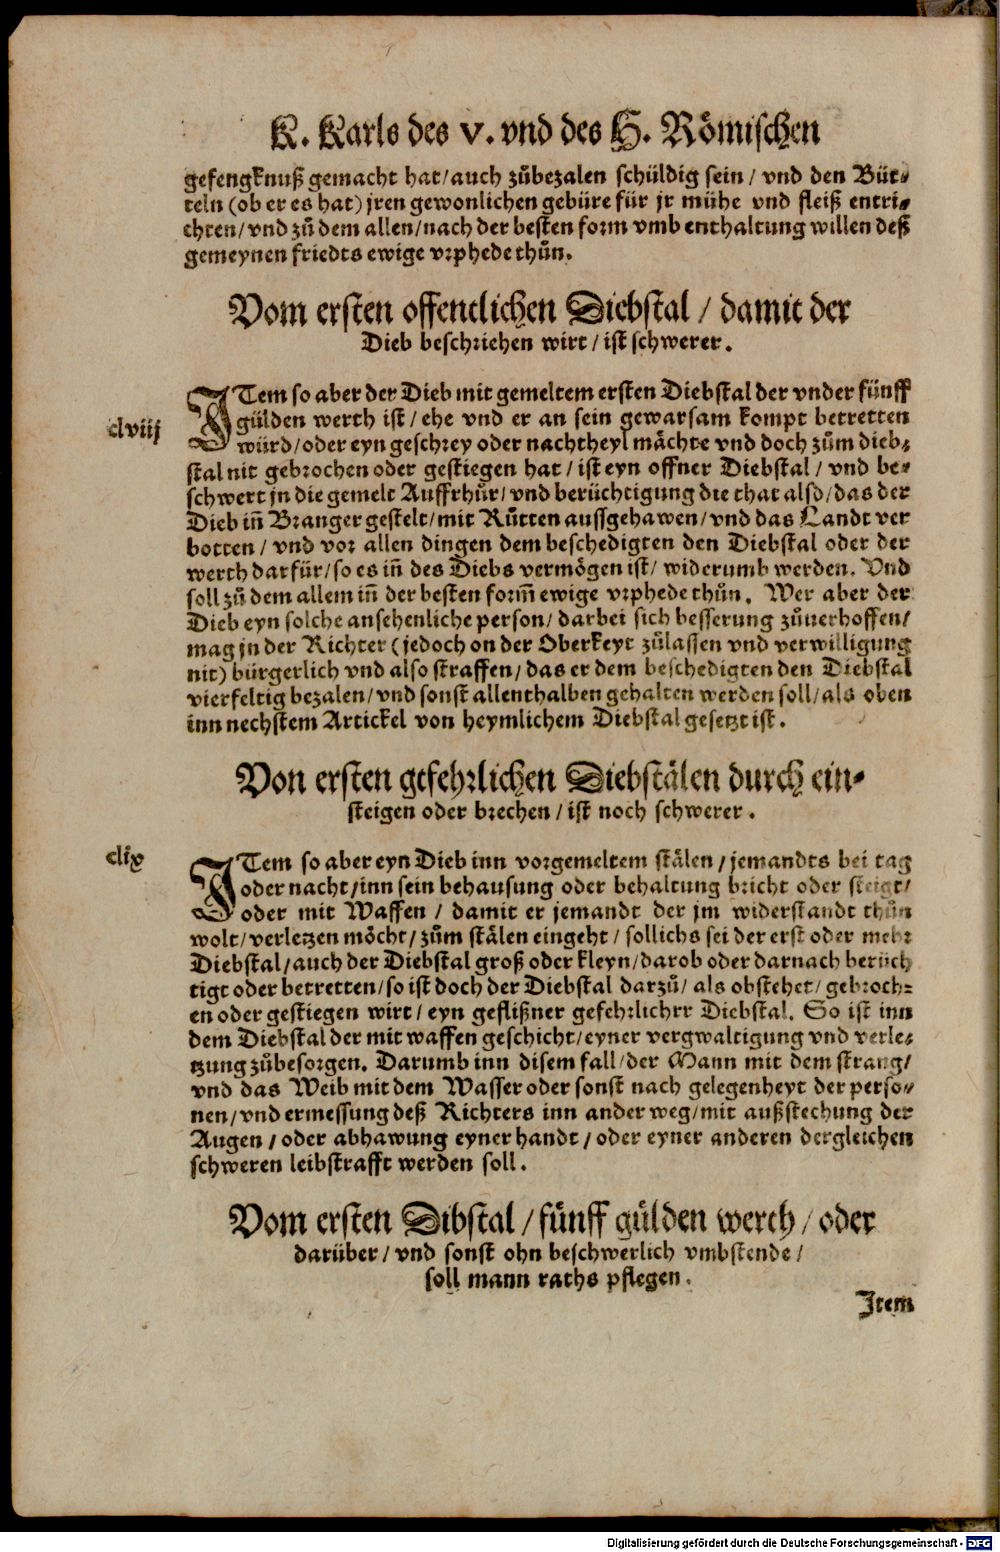 K. Karls des V. vnd des H. Römischen
gefengknuß gemacht hat/auch zůbezalen schüldig sein/ vnd den Büt-
teln (ob er es hat) jren gewonlichen gebüre für jr mühe vnd fleiß entri-
chten/vnd zů dem allen/nach der besten form vmb enthaltung willen deß
gemeynen friedts ewige vrphede thůn.
Vom ersten offentlichen Diebstal/ damit der
Dieb beschriehen wirt/ ist schwerer.
clviij
ITem so aber der Dieb mit gemeltem ersten Diebstal der vnder fünff
gülden werth ist/ ehe vnd er an sein gewarsam kompt betretten
würd/oder eyn geschrey oder nachtheyl mächte vnd doch zům dieb-
stal nit gebrochen oder gestiegen hat/ ist eyn offner Diebstal/ vnd be-
schwert jn die gemelt Auffrhůr/ vnd berüchtigung die that also/das der
Dieb iñ Branger gestelt/mit Růtten aussgehawen/vnd das Landt ver
botten/ vnd vor allen dingen dem beschedigten den Diebstal oder der
werth darfür/so es iñ des Diebs vermögen ist/ widerumb werden. Vnd
soll zů dem allem iñ der besten form̃ ewige vrphede thůn. Wer aber der
Dieb eyn solche ansehenliche person/darbei sich besserung zůuerhoffen/
mag jn der Richter (jedoch on der Oberkeyt zůlassen vnd verwilligung
nit) bürgerlich vnd also straffen/das er dem beschedigten den Diebstal
vierfeltig bezalen/vnd sonst allenthalben gehalten werden soll/als oben
inn nechstem Artickel von heymlichem Diebstal gesetzt ist.
Von ersten gefehrlichen Diebstälen durch ein-
steigen oder brechen/ ist noch schwerer.
clix
ITem so aber eyn Dieb inn vorgemeltem stälen/jemandts bei tag
oder nacht/inn sein behausung oder behaltung bricht oder steigt/
oder mit Waffen/ damit er jemandt der jm widerstandt thůn
wolt/verletzen möcht/zům stälen eingeht/ sollichs sei der erst oder mehr
Diebstal/auch der Diebstal groß oder kleyn/darob oder darnach berüch
tigt oder betretten/so ist doch der Diebstal darzů/ als obstehet/gebroch-
en oder gestiegen wirt/ eyn geflißner gefehrlichrr Diebstal. So ist inn
dem Diebstal der mit waffen geschicht/eyner vergwaltigung vnd verle-
tzung zůbesorgen. Darumb inn disem fall/der Mann mit dem strang/
vnd das Weib mit dem Wasser oder sonst nach gelegenheyt der perso-
nen/vnd ermessung deß Richters inn ander weg/mit außstechung der
Augen/oder abhawung eyner handt/oder eyner anderen dergleichen
schweren leibstrafft werden soll.
Vom ersten Dibstal/fünff gülden werth/oder
darüber/ vnd sonst ohn beschwerlich vmbstende/
soll mann raths pflegen.
Item
Digitalisierung gefördert durch die Deutsche Forschungsgemeinschaft - DFG